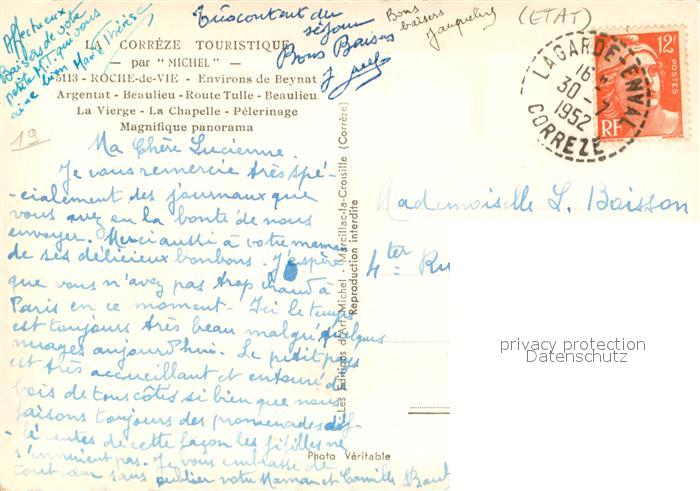 Affectueux
Baisers de votre
petite M.T. qui vous
aime bien Marie Thérèse
Très contente du
séjour
Bons Baisers
Bons
baisers
Jacqueline
(ETAT)
LA CORRÈZE TOURISTIQUE
— par "MICHEL" —
5113 - ROCHE-de-VIE - Environs de Beynat
Argentat - Beaulieu - Route Tulle - Beaulieu
La Vierge - La Chapelle - Pélerinage
Magnifique panorama
19
Ma Chère Lucienne.
Je vous remercie très spé-
-cialement des journaux que
vous avez eu la bonté de nous
envoyer. Merci aussi à votre maman
de ses délicieux bonbons. J'espère
que vous n'avez pas trop chaud à
Paris en ce moment - Ici le temps
est toujours très beau malgré quelques
nuages aujourd'hui. Le petit pays
est très accueillant et entouré de
bois de tous côtés si bien que nous
faisons toujours des promenades dif-
-férentes de cette façon les fifilles ne
s'ennuient pas. Je vous embrasse de
tout cœur sans oublier votre Maman et Camille
Les Editions d'Art Michel - Marcillac-la-Croisille (Corrèze)
Reproduction interdite
Photo Véritable
LAGARDE-ENVAL
16
30 - 7
1952
CORREZE
12F
POSTES
RF
Mademoiselle L. Boisson
4 ter Ru
privacy protection
Datenschutz